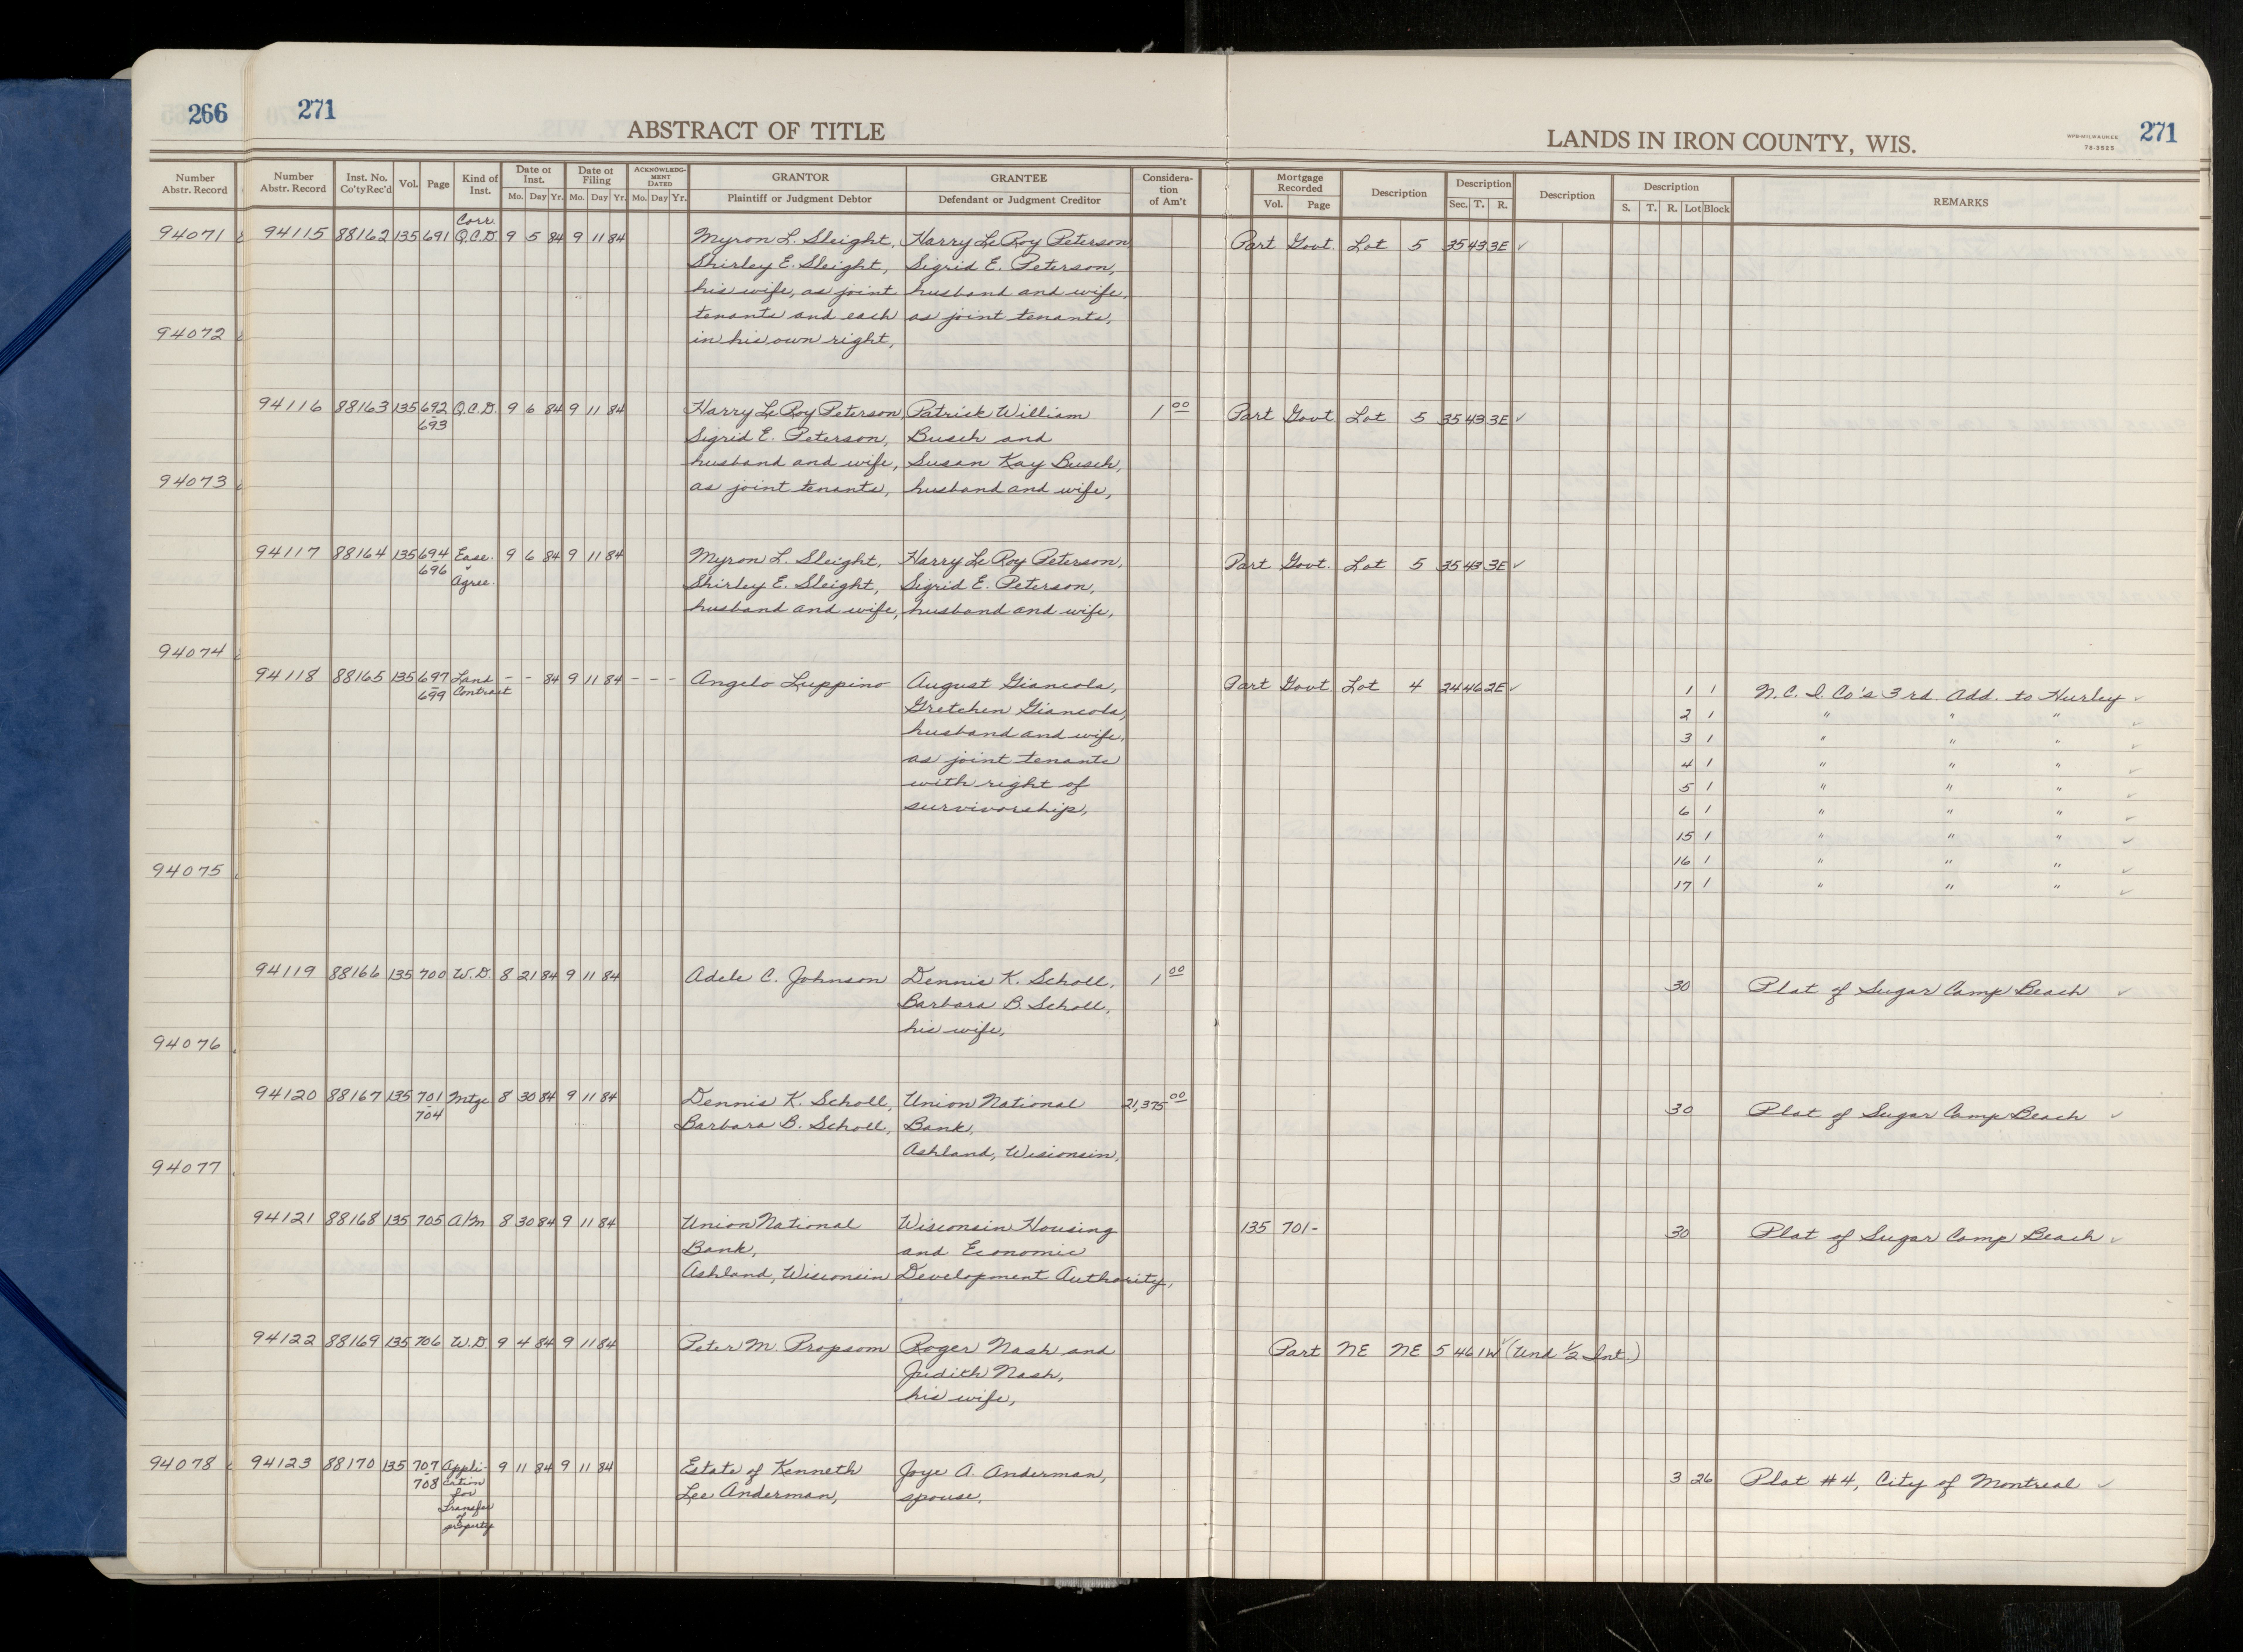 266
271
ABSTRACT OF TITLE
LANDS IN IRON COUNTY, WIS.
WPB-MILWAUKEE
78-3525
271
Number Abstr. Record
Number Abstr. Record
Inst. No. Co'ty Rec'd
Vol.
Page
Kind of Inst.
Date of Inst.
Mo. Day Yr.
Date of Filing
Mo. Day Yr.
ACKNOWLEDGMENT DATED
Mo. Day Yr.
GRANTOR
Plaintiff or Judgment Debtor
GRANTEE
Defendant or Judgment Creditor
Consideration of Am't
Mortgage Recorded
Vol. Page
Description
Description
Sec. T. R.
Description
Description
S. T. R. Lot Block
REMARKS
94071
94072
94073
94074
94075
94076
94077
94078
Corr.
94115 88162 135 691 Q.C.D. 9 5 84 9 11 84 Myron L. Sleight, Harry LeRoy Peterson Part Govt. Lot 5 35 43 3E ✓
Shirley E. Sleight, Sigrid E. Peterson,
his wife, as joint husband and wife,
tenants and each as joint tenants,
in his own right,
94116 88163 135 692 Q.C.D. 9 6 84 9 11 84 Harry LeRoy Peterson, Patrick William 1 00 Part Govt Lot 5 35 43 3E ✓
- 693 Sigrid E. Peterson, Busch and
husband and wife, Susan Kay Busch,
as joint tenants, husband and wife,
94117 88164 135 694 Ease. 9 6 84 9 11 84 Myron L. Sleight, Harry LeRoy Peterson, Part Govt. Lot 5 35 43 3E ✓
- 696 Agree. Shirley E. Sleight, Sigrid E. Peterson,
husband and wife, husband and wife,
94118 88165 135 697 Land - - 84 9 11 84 - - - Angelo Luppino August Giancola, Part Govt. Lot 4 24 46 2E ✓ 1 1 N.C.I. Co's 3rd. Add. to Hurley ✓
- 699 Contract Gretchen Giancola, 2 1 " " " ✓
husband and wife, 3 1 " " " ✓
as joint tenants 4 1 " " " ✓
with right of 5 1 " " " ✓
survivorship, 6 1 " " " ✓
15 1 " " " ✓
16 1 " " " ✓
17 1 " " " ✓
94119 88166 135 700 W.D. 8 21 84 9 11 84 Adele C. Johnson Dennis K. Scholl, 1 00 30 Plat of Sugar Camp Beach ✓
Barbara B. Scholl,
his wife,
94120 88167 135 701 Mtge 8 30 84 9 11 84 Dennis K. Scholl, Union National 21,375 00 30 Plat of Sugar Camp Beach ✓
- 704 Barbara B. Scholl, Bank,
Ashland, Wisconsin,
94121 88168 135 705 A/M 8 30 84 9 11 84 Union National Wisconsin Housing 135 701- 30 Plat of Sugar Camp Beach ✓
Bank, and Economic
Ashland, Wisconsin Development Authority,
94122 88169 135 706 W.D. 9 4 84 9 11 84 Peter M. Propsom Roger Nash and Part NE NE 5 46 1W ✓ (Und 1/2 Int.)
Judith Nash,
his wife,
94123 88170 135 707 Appli- 9 11 84 9 11 84 Estate of Kenneth Joye A. Anderman, 3 26 Plat #4, City of Montreal ✓
- 708 cation Lee Anderman, spouse,
for
Transfer
of
property